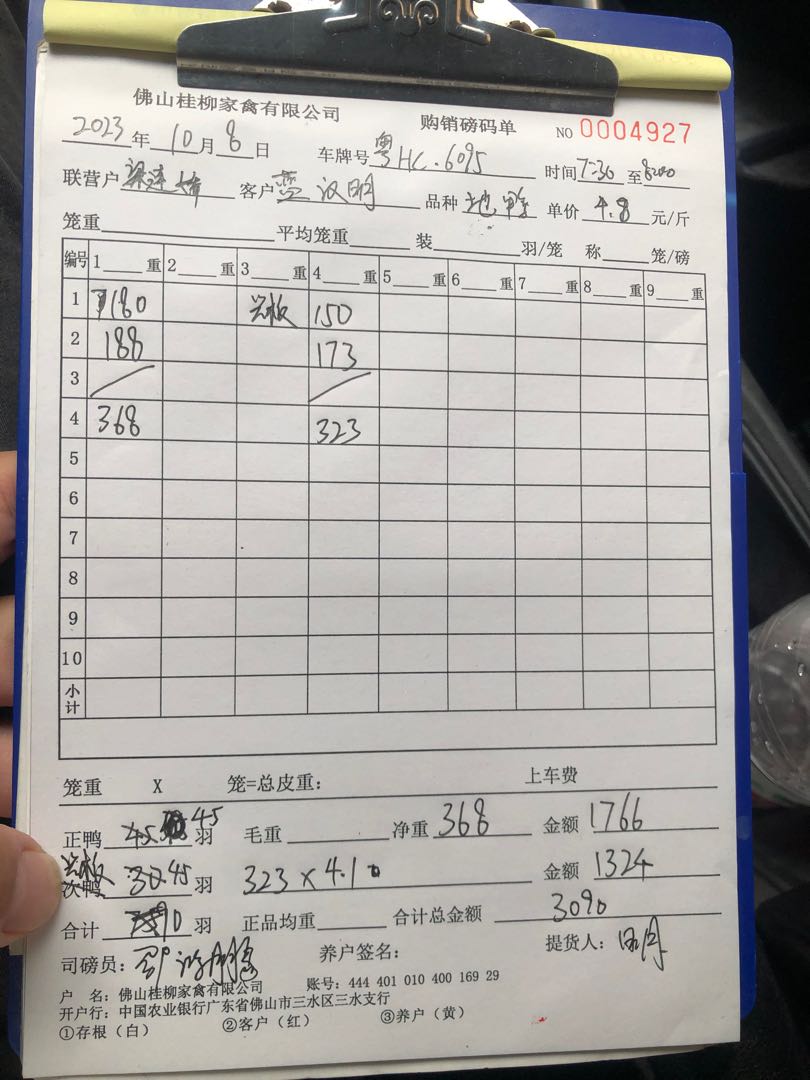 佛山桂柳家禽有限公司 购销磅码单 NO 0004927
2023年10月8日 车牌号粤HC·6095 时间7:30至8:00
联营户 客户蓝汉明 品种地鸭 单价4.8元/斤
笼重 平均笼重 装 羽/笼 称 笼/磅
编号 1 重 2 重 3 重 4 重 5 重 6 重 7 重 8 重 9 重
1 180 150
2 188 173
3
4 368 323
5
6
7
8
9
10
小计
笼重 X 笼=总皮重: 上车费
正鸭 45 羽 毛重 净重 368 金额 1766
次鸭 45 羽 323×4.10 金额 1324
合计 90 羽 正品均重 合计总金额 3090
司磅员: 养户签名: 提货人:
户 名: 佛山桂柳家禽有限公司 账号: 444 401 010 400 169 29
开户行: 中国农业银行广东省佛山市三水区三水支行
①存根(白) ②客户(红) ③养户(黄)